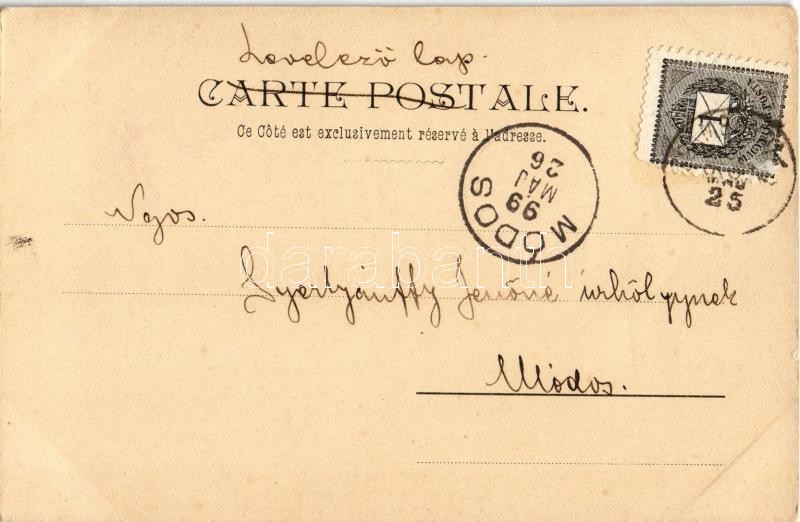 Levelező lap.
CARTE POSTALE.
Ce Côté est exclusivement réservé à l'adresse.
MÓDOS
99
MÁJ
26
25
1
Ngos.
Gyertyánffy Jenőné úrhölgynek
Módos.
darabanth